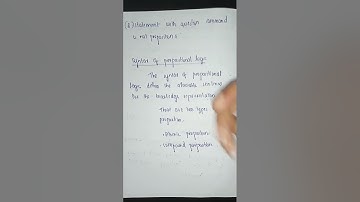 (6) Statement with question command
is not proposition.
Syntax of propositional logic
The syntax of propositional
logic defines the allowable sentence
for the knowledge representation
There are two types
proposition.
• Atomic proposition
• compound proposition